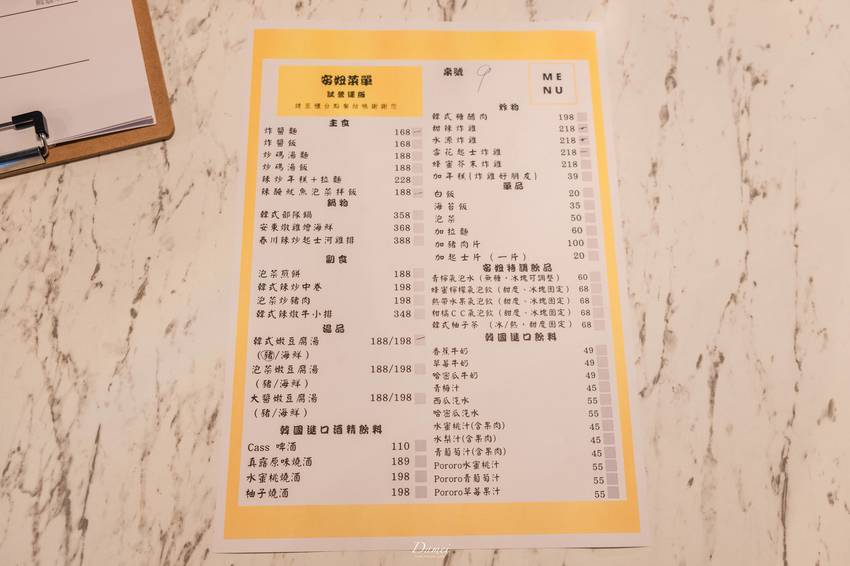 蜜妞菜單
試營運版
請至櫃台點餐結帳謝謝您
主食
炸醬麵 168
炸醬飯 168
炒碼湯麵 188
炒碼湯飯 188
辣炒年糕+拉麵 228
辣醃魷魚泡菜拌飯 188
鍋物
韓式部隊鍋 358
安東燉雞燴海鮮 368
春川辣炒起士河雞排 388
副食
泡菜煎餅 188
韓式辣炒中卷 198
泡菜炒豬肉 198
韓式辣燉牛小排 348
湯品
韓式嫩豆腐湯 188/198
(豬/海鮮)
泡菜嫩豆腐湯 188/198
(豬/海鮮)
大醬嫩豆腐湯 188/198
(豬/海鮮)
韓國進口酒精飲料
Cass 啤酒 110
真露原味燒酒 189
水蜜桃燒酒 198
柚子燒酒 198
桌號 9
ME
NU
炒物
韓式糖醋肉 198
甜辣炸雞 218
水原炸雞 218
雪花起士炸雞 218
蜂蜜芥末炸雞 218
加年糕(炸雞好朋友) 39
單品
白飯 20
海苔飯 35
泡菜 50
加拉麵 60
加豬肉片 100
加起士片 (一片) 20
蜜妞特調飲品
青檸氣泡水 (無糖、冰塊可調整) 60
蜂蜜檸檬氣泡飲 (甜度、冰塊固定) 68
熱帶水果氣泡飲 (甜度、冰塊固定) 68
柑橘CC氣泡飲 (甜度、冰塊固定) 68
韓式柚子茶 (冰/熱,甜度固定) 68
韓國進口飲料
香蕉牛奶 49
草莓牛奶 49
哈密瓜牛奶 49
青梅汁 45
西瓜汽水 55
哈密瓜汽水 55
水蜜桃汁(含果肉) 45
水梨汁(含果肉) 45
青葡萄汁(含果肉) 45
Pororo水蜜桃汁 55
Pororo青葡萄汁 55
Pororo草莓果汁 55
Damei